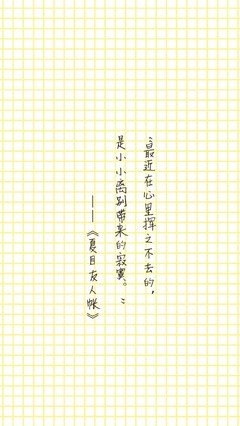 “最近在心里挥之不去的，
是小小离别带来的寂寞。”
——《夏目友人帐》